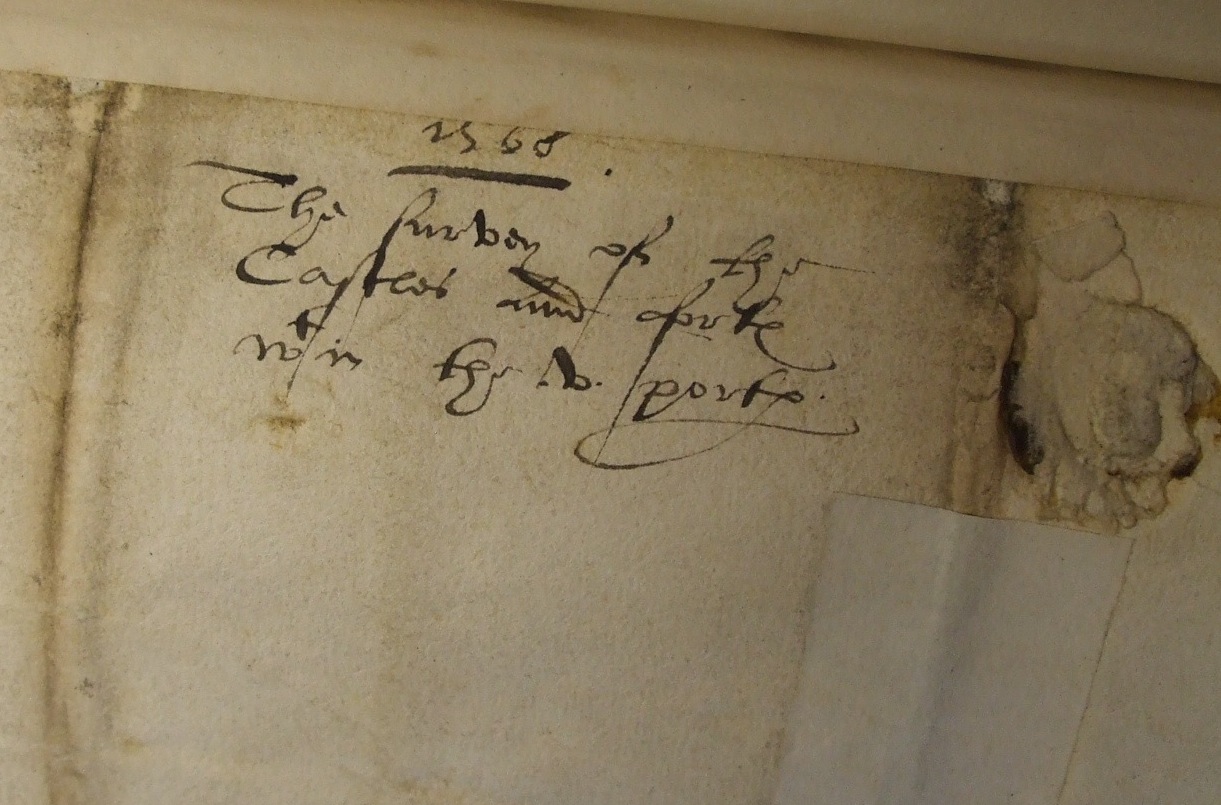 1568.
The survey of the
Castles and fortꝭ
wᵗin the .v. portꝭ.